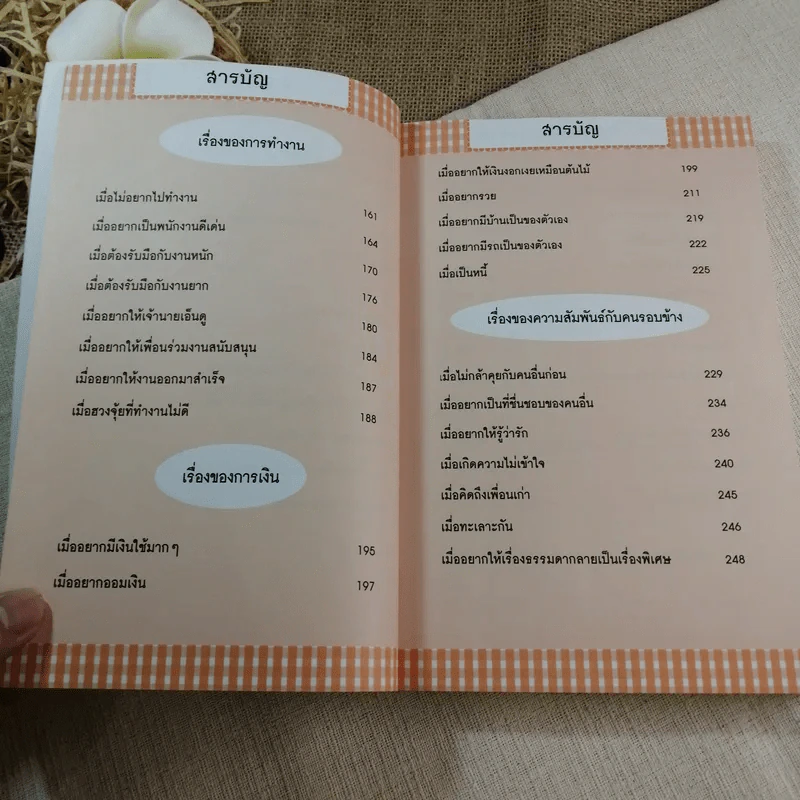 สารบัญ
เรื่องของการทำงาน
เมื่อไม่อยากไปทำงาน 161
เมื่ออยากเป็นพนักงานดีเด่น 164
เมื่อต้องรับมือกับงานหนัก 170
เมื่อต้องรับมือกับงานยาก 176
เมื่ออยากให้เจ้านายเอ็นดู 180
เมื่ออยากให้เพื่อนร่วมงานสนับสนุน 184
เมื่ออยากให้งานออกมาสำเร็จ 187
เมื่อฮวงจุ้ยที่ทำงานไม่ดี 188
เรื่องของการเงิน
เมื่ออยากมีเงินใช้มาก ๆ 195
เมื่ออยากออมเงิน 197
สารบัญ
เมื่ออยากให้เงินงอกเงยเหมือนต้นไม้ 199
เมื่ออยากรวย 211
เมื่ออยากมีบ้านเป็นของตัวเอง 219
เมื่ออยากมีรถเป็นของตัวเอง 222
เมื่อเป็นหนี้ 225
เรื่องของความสัมพันธ์กับคนรอบข้าง
เมื่อไม่กล้าคุยกับคนอื่นก่อน 229
เมื่ออยากเป็นที่ชื่นชอบของคนอื่น 234
เมื่ออยากให้รู้ว่ารัก 236
เมื่อเกิดความไม่เข้าใจ 240
เมื่อคิดถึงเพื่อนเก่า 245
เมื่อทะเลาะกัน 246
เมื่ออยากให้เรื่องธรรมดากลายเป็นเรื่องพิเศษ 248